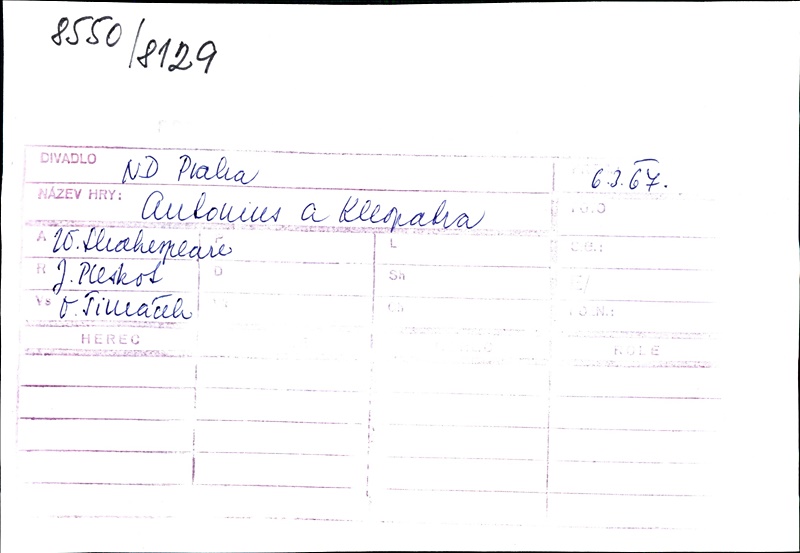 8550/8129
DIVADLO ND Praha 6.3.67.
NÁZEV HRY: Antonius a Kleopatra
A W. Shakespeare L
R J. Pleskot O Sh
Vs V. Šimáček Ch
HEREC ROLE